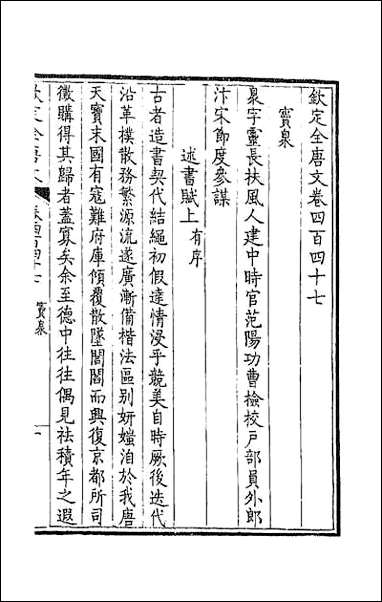 欽定全唐文卷四百四十七
竇臮
臮字靈長扶風人建中時官范陽功曹檢校戶部員外郎
汴宋節度參謀
述書賦上有序
古者造書契代結繩初假達情浸乎競美自時厥後迭代
沿革樸散務繁源流遂廣漸備楷法區别妍媸洎於我唐
天寶末國有寇難府庫傾覆散墜閭閻而興復京都所司
徵購得其歸者蓋寡矣余至德中往往偶見祛積年之遐
欽定全唐文
卷四百四十七
竇臮
一